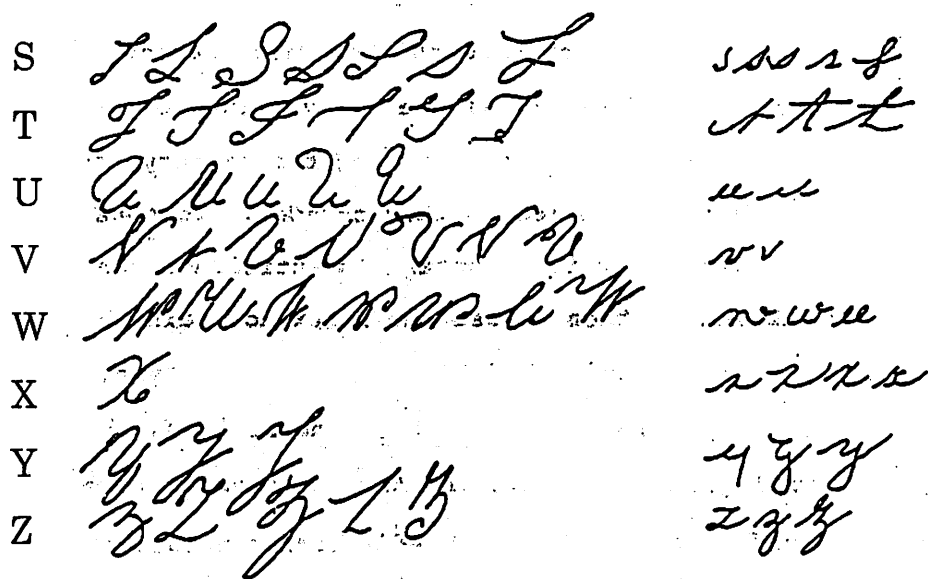 S S S S S S S S s s s s s
T T T T T T T t t t
U U U U U U u u
V V V V V V V V v v
W W W W W W W W w w w
X X x x x x
Y Y Y Y y y y
Z Z Z Z Z Z z z z